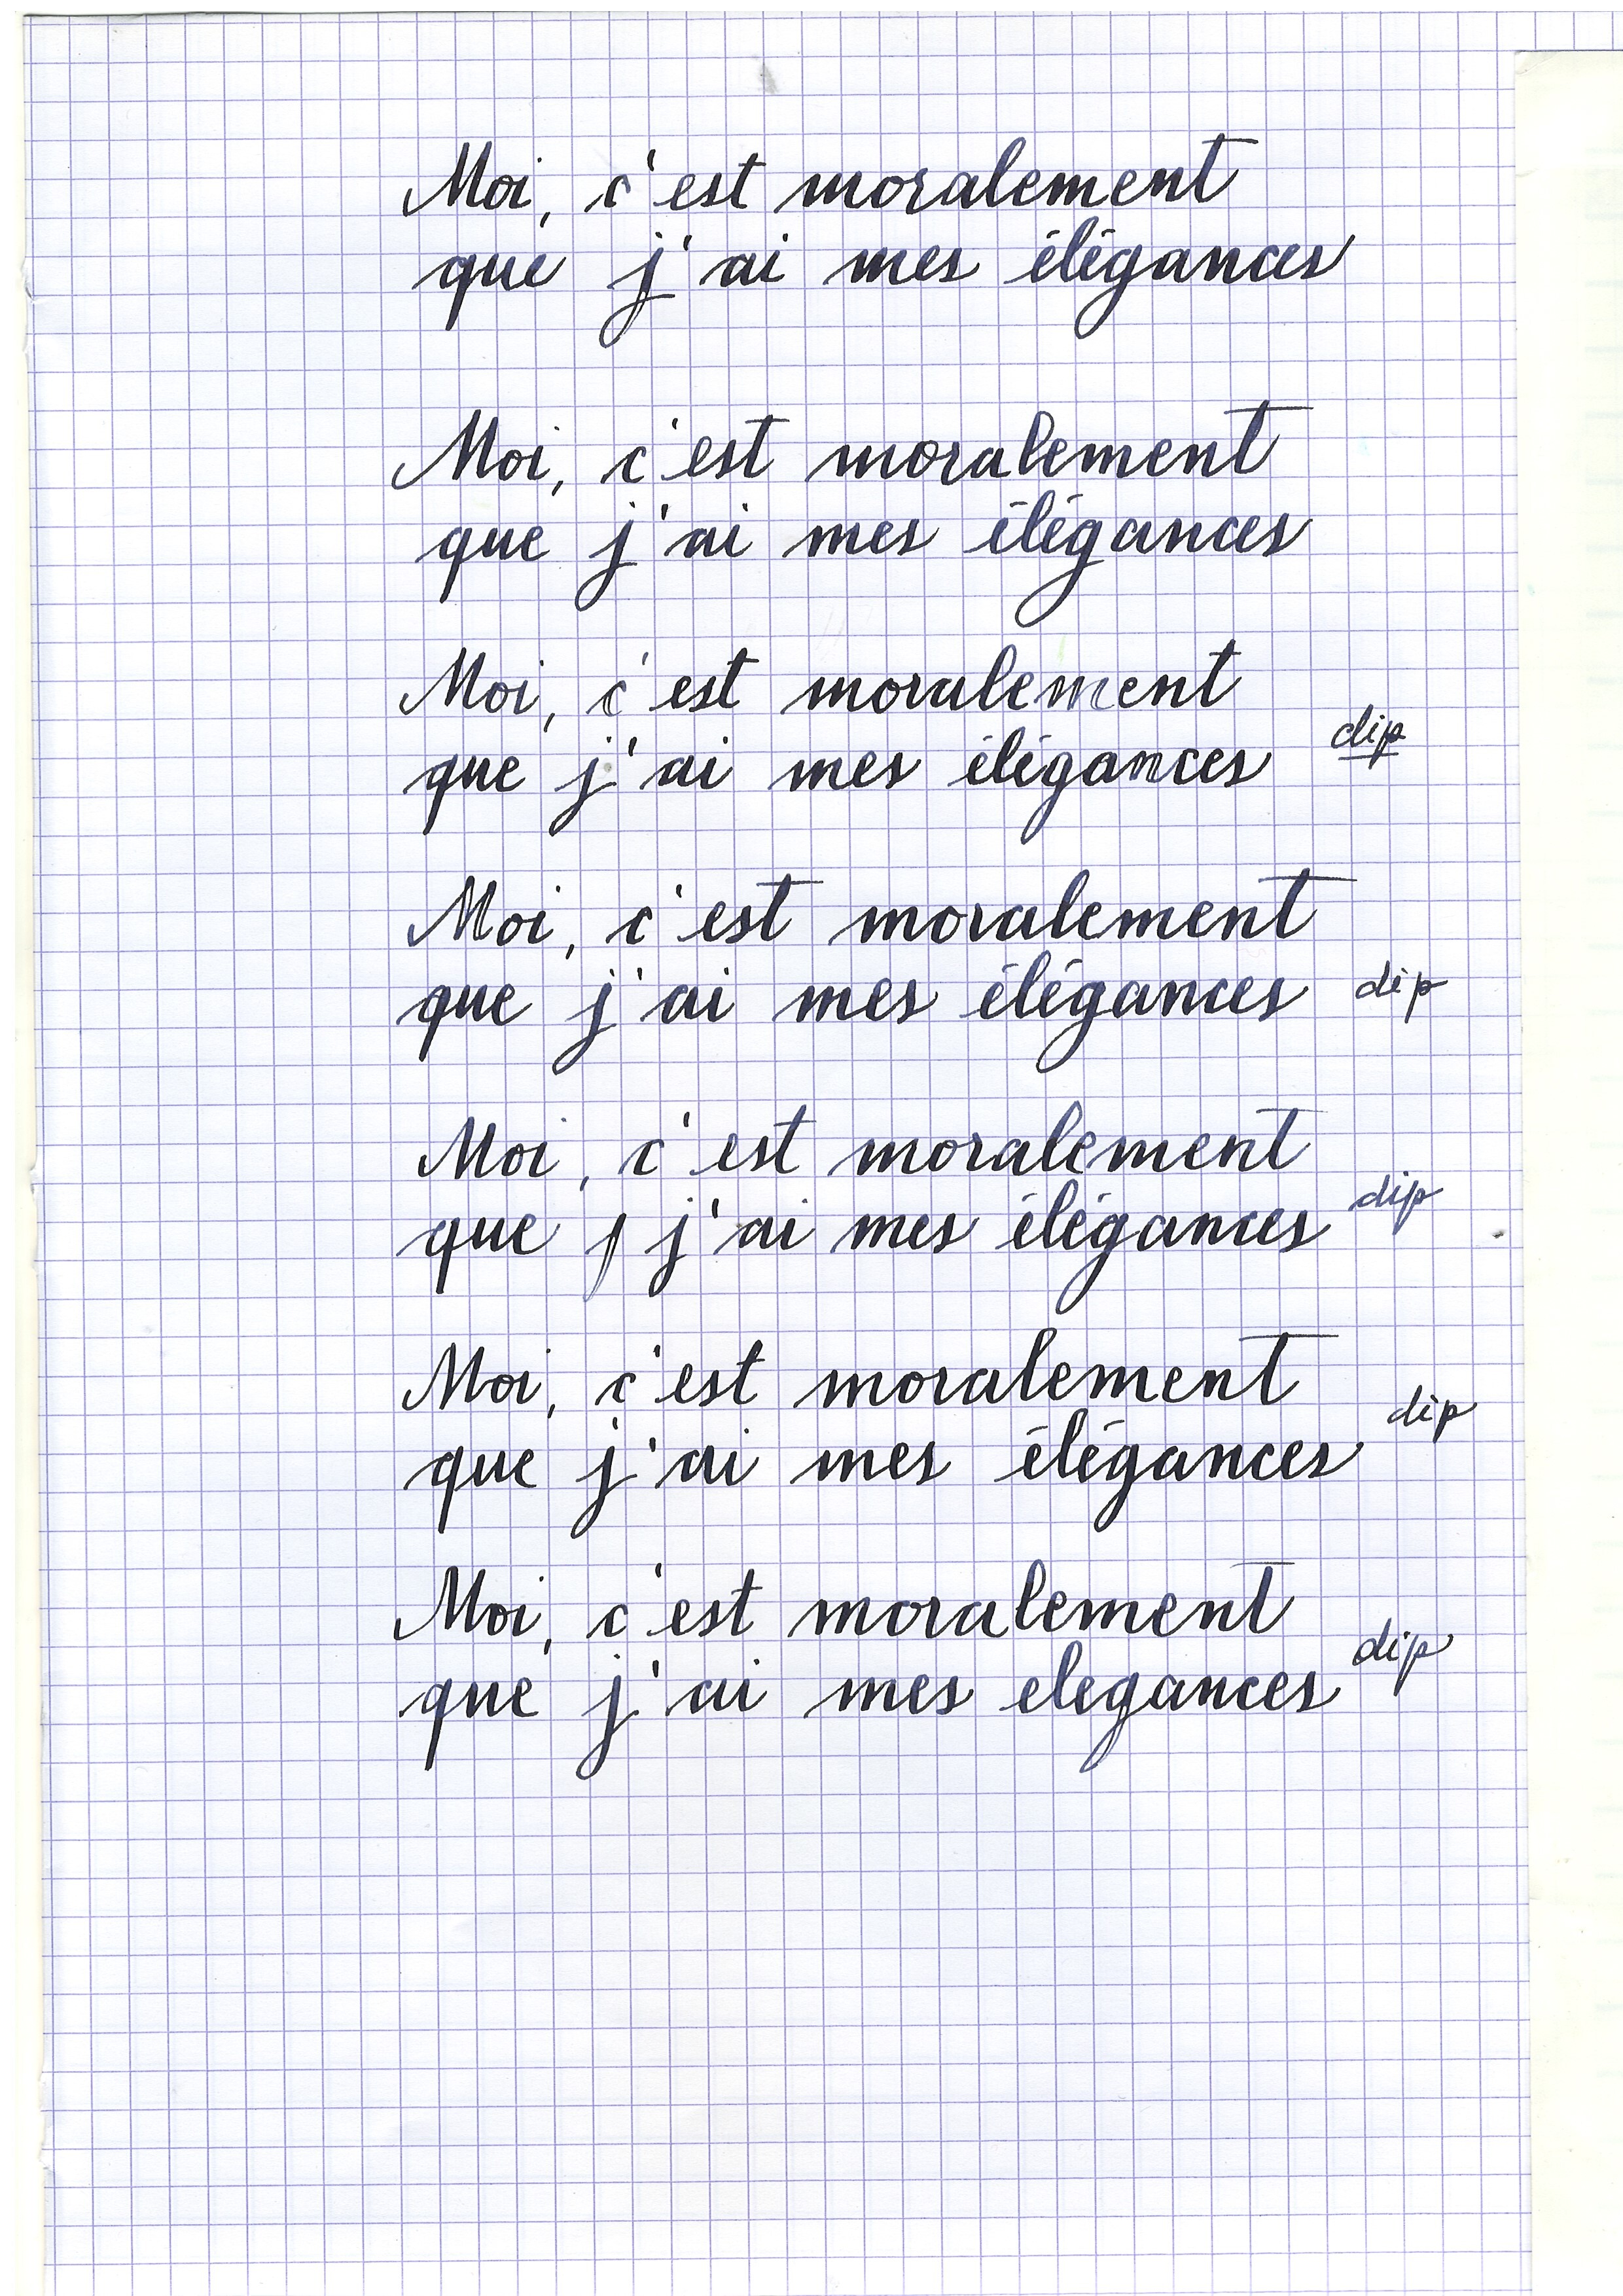 Moi, c'est moralement
que j'ai mes élégances
Moi, c'est moralement
que j'ai mes élégances
Moi, c'est moralement
que j'ai mes élégances dip
Moi, c'est moralement
que j'ai mes élégances dip
Moi, c'est moralement
que j j'ai mes élégances dip
Moi, c'est moralement
que j'ai mes élégances dip
Moi, c'est moralement
que j'ai mes elegances dip